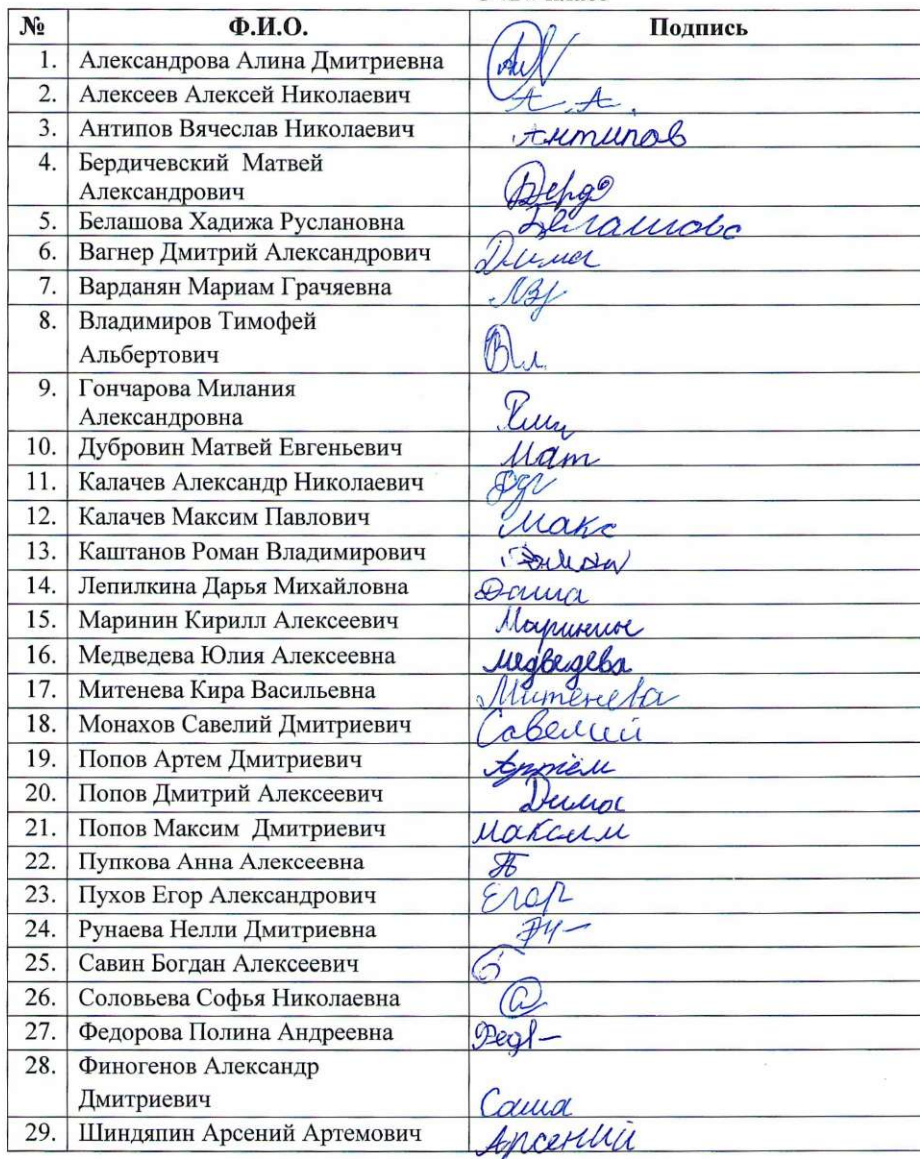 № Ф.И.О. Подпись
1. Александрова Алина Дмитриевна
2. Алексеев Алексей Николаевич А. А.
3. Антипов Вячеслав Николаевич Антипов
4. Бердичевский Матвей
Александрович
5. Белашова Хадижа Руслановна Белашова
6. Вагнер Дмитрий Александрович Дима
7. Варданян Мариам Грачяевна
8. Владимиров Тимофей
Альбертович Вл
9. Гончарова Милания
Александровна
10. Дубровин Матвей Евгеньевич Мат
11. Калачев Александр Николаевич
12. Калачев Максим Павлович Макс
13. Каштанов Роман Владимирович
14. Лепилкина Дарья Михайловна Даша
15. Маринин Кирилл Алексеевич
16. Медведева Юлия Алексеевна медведева
17. Митенева Кира Васильевна Митенева
18. Монахов Савелий Дмитриевич Савелий
19. Попов Артем Дмитриевич Артём
20. Попов Дмитрий Алексеевич Дима
21. Попов Максим Дмитриевич Максим
22. Пупкова Анна Алексеевна
23. Пухов Егор Александрович Егор
24. Рунаева Нелли Дмитриевна
25. Савин Богдан Алексеевич
26. Соловьева Софья Николаевна
27. Федорова Полина Андреевна
28. Финогенов Александр
Дмитриевич Саша
29. Шиндяпин Арсений Артемович Арсений